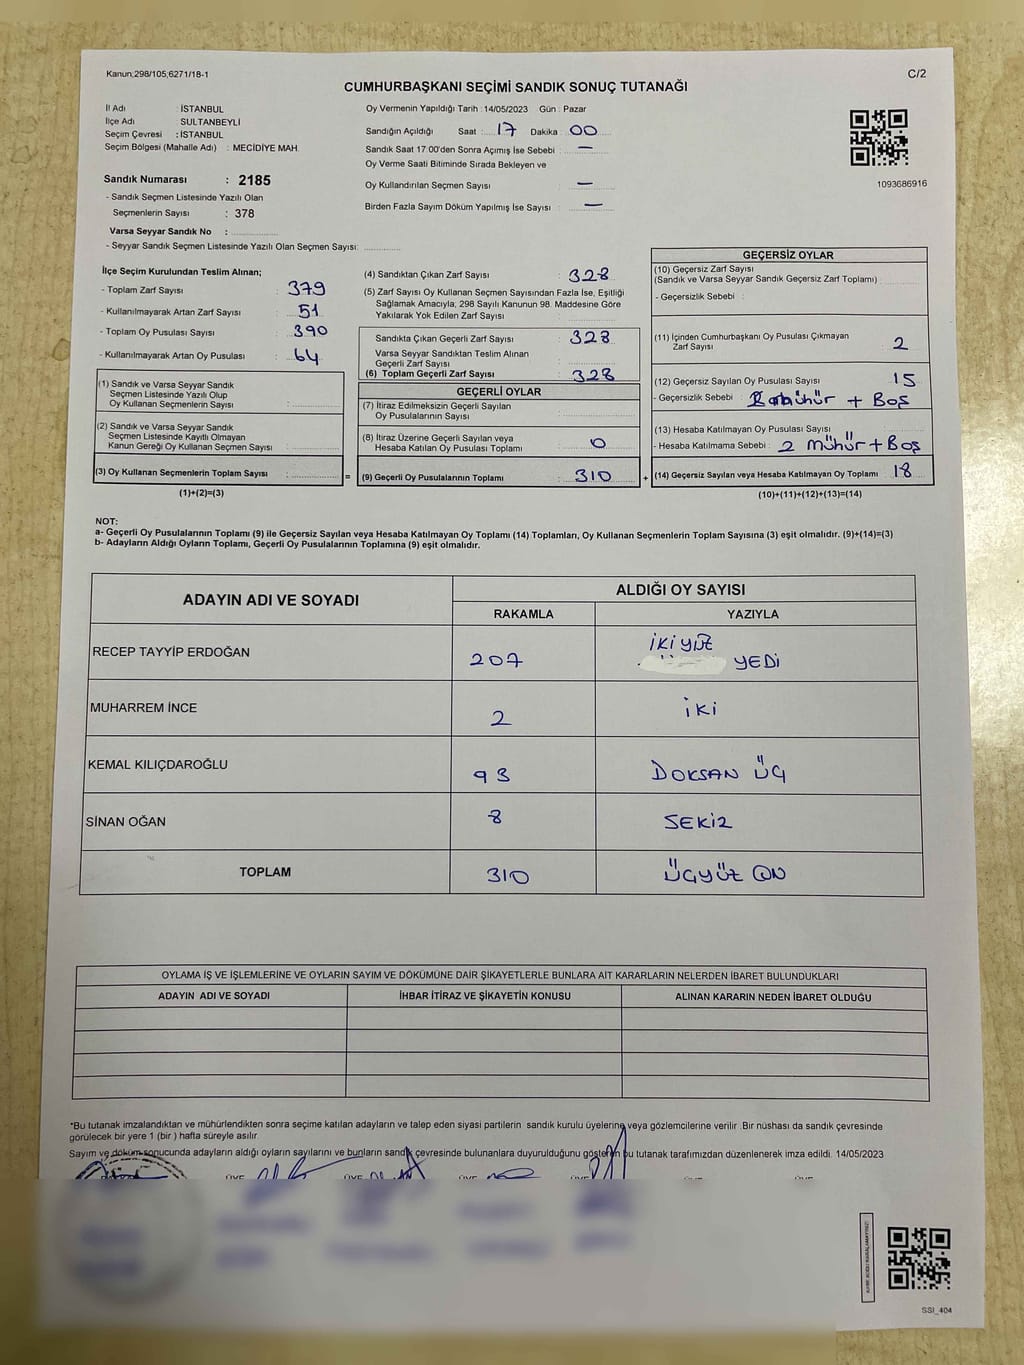 Kanun;298/105;6271/18-1
C/2
CUMHURBAŞKANI SEÇİMİ SANDIK SONUÇ TUTANAĞI
İl Adı : İSTANBUL
İlçe Adı : SULTANBEYLİ
Seçim Çevresi : İSTANBUL
Seçim Bölgesi (Mahalle Adı) : MECİDİYE MAH.
Sandık Numarası : 2185
- Sandık Seçmen Listesinde Yazılı Olan
Seçmenlerin Sayısı : 378
Varsa Seyyar Sandık No :
- Seyyar Sandık Seçmen Listesinde Yazılı Olan Seçmen Sayısı:
Oy Vermenin Yapıldığı Tarih : 14/05/2023 Gün : Pazar
Sandığın Açıldığı Saat : 17 Dakika : 00
Sandık Saat 17:00'den Sonra Açımış İse Sebebi : —
Oy Verme Saati Bitiminde Sırada Bekleyen ve
Oy Kullandırılan Seçmen Sayısı : —
Birden Fazla Sayım Döküm Yapılmış İse Sayısı : —
1093686916
İlçe Seçim Kurulundan Teslim Alınan;
- Toplam Zarf Sayısı : 379
- Kullanılmayarak Artan Zarf Sayısı : 51
- Toplam Oy Pusulası Sayısı : 390
- Kullanılmayarak Artan Oy Pusulası : 64
(1) Sandık ve Varsa Seyyar Sandık
Seçmen Listesinde Yazılı Olup
Oy Kullanan Seçmenlerin Sayısı :
(2) Sandık ve Varsa Seyyar Sandık
Seçmen Listesinde Kayıtlı Olmayan
Kanun Gereği Oy Kullanan Seçmen Sayısı :
(3) Oy Kullanan Seçmenlerin Toplam Sayısı : =
(1)+(2)=(3)
(4) Sandıktan Çıkan Zarf Sayısı : 328
(5) Zarf Sayısı Oy Kullanan Seçmen Sayısından Fazla İse, Eşitliği
Sağlamak Amacıyla; 298 Sayılı Kanunun 98. Maddesine Göre
Yakılarak Yok Edilen Zarf Sayısı :
Sandıkta Çıkan Geçerli Zarf Sayısı : 328
Varsa Seyyar Sandıktan Teslim Alınan
Geçerli Zarf Sayısı :
(6) Toplam Geçerli Zarf Sayısı : 328
GEÇERLİ OYLAR
(7) İtiraz Edilmeksizin Geçerli Sayılan
Oy Pusulalarının Sayısı :
(8) İtiraz Üzerine Geçerli Sayılan veya
Hesaba Katılan Oy Pusulası Toplamı : 0
(9) Geçerli Oy Pusulalarının Toplamı : 310 +
GEÇERSİZ OYLAR
(10) Geçersiz Zarf Sayısı
(Sandık ve Varsa Seyyar Sandık Geçersiz Zarf Toplamı) :
- Geçersizlik Sebebi :
(11) İçinden Cumhurbaşkanı Oy Pusulası Çıkmayan
Zarf Sayısı : 2
(12) Geçersiz Sayılan Oy Pusulası Sayısı : 15
- Geçersizlik Sebebi : mühür + Boş
(13) Hesaba Katılmayan Oy Pusulası Sayısı :
- Hesaba Katılmama Sebebi : 2 mühür + Boş
(14) Geçersiz Sayılan veya Hesaba Katılmayan Oy Toplamı : 18
(10)+(11)+(12)+(13)=(14)
NOT:
a- Geçerli Oy Pusulalarının Toplamı (9) ile Geçersiz Sayılan veya Hesaba Katılmayan Oy Toplamı (14) Toplamları, Oy Kullanan Seçmenlerin Toplam Sayısına (3) eşit olmalıdır. (9)+(14)=(3)
b- Adayların Aldığı Oyların Toplamı, Geçerli Oy Pusulalarının Toplamına (9) eşit olmalıdır.
ADAYIN ADI VE SOYADI ALDIĞI OY SAYISI
RAKAMLA YAZIYLA
RECEP TAYYİP ERDOĞAN 207 İKİYÜZ
YEDİ
MUHARREM İNCE 2 İKİ
KEMAL KILIÇDAROĞLU 93 DOKSAN ÜÇ
SİNAN OĞAN 8 SEKİZ
TOPLAM 310 ÜÇYÜZ ON
OYLAMA İŞ VE İŞLEMLERİNE VE OYLARIN SAYIM VE DÖKÜMÜNE DAİR ŞİKAYETLERLE BUNLARA AİT KARARLARIN NELERDEN İBARET BULUNDUKLARI
ADAYIN ADI VE SOYADI İHBAR İTİRAZ VE ŞİKAYETİN KONUSU ALINAN KARARIN NEDEN İBARET OLDUĞU
*Bu tutanak imzalandıktan ve mühürlendikten sonra seçime katılan adayların ve talep eden siyasi partilerin sandık kurulu üyelerine veya gözlemcilerine verilir .Bir nüshası da sandık çevresinde
görülecek bir yere 1 (bir ) hafta süreyle asılır
Sayım ve döküm sonucunda adayların aldığı oyların sayılarını ve bunların sandık çevresinde bulunanlara duyurulduğunu gösteren bu tutanak tarafımızdan düzenlenerek imza edildi. 14/05/2023
ÜYE ÜYE ÜYE ÜYE ÜYE ÜYE
SSI_404